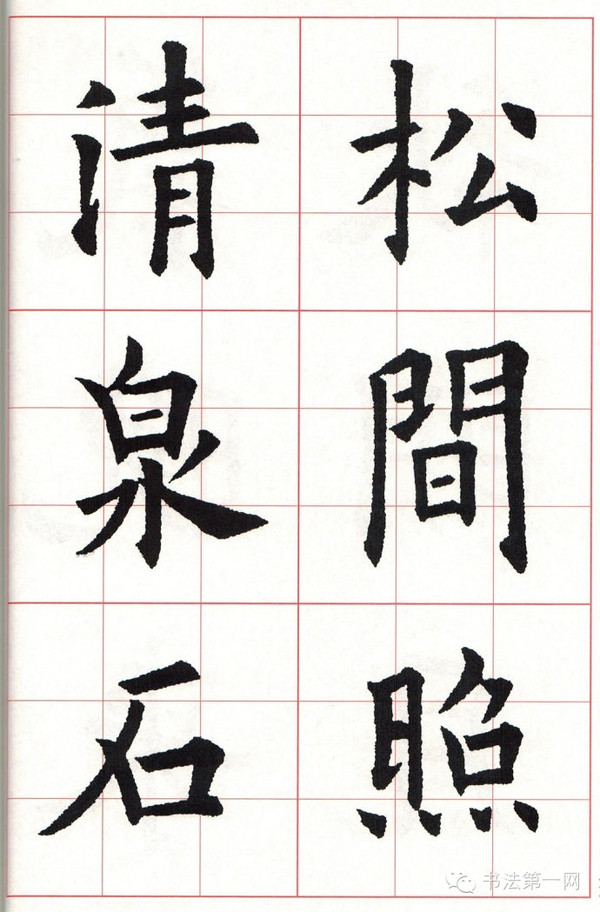 松間照
清泉石
书法第一网